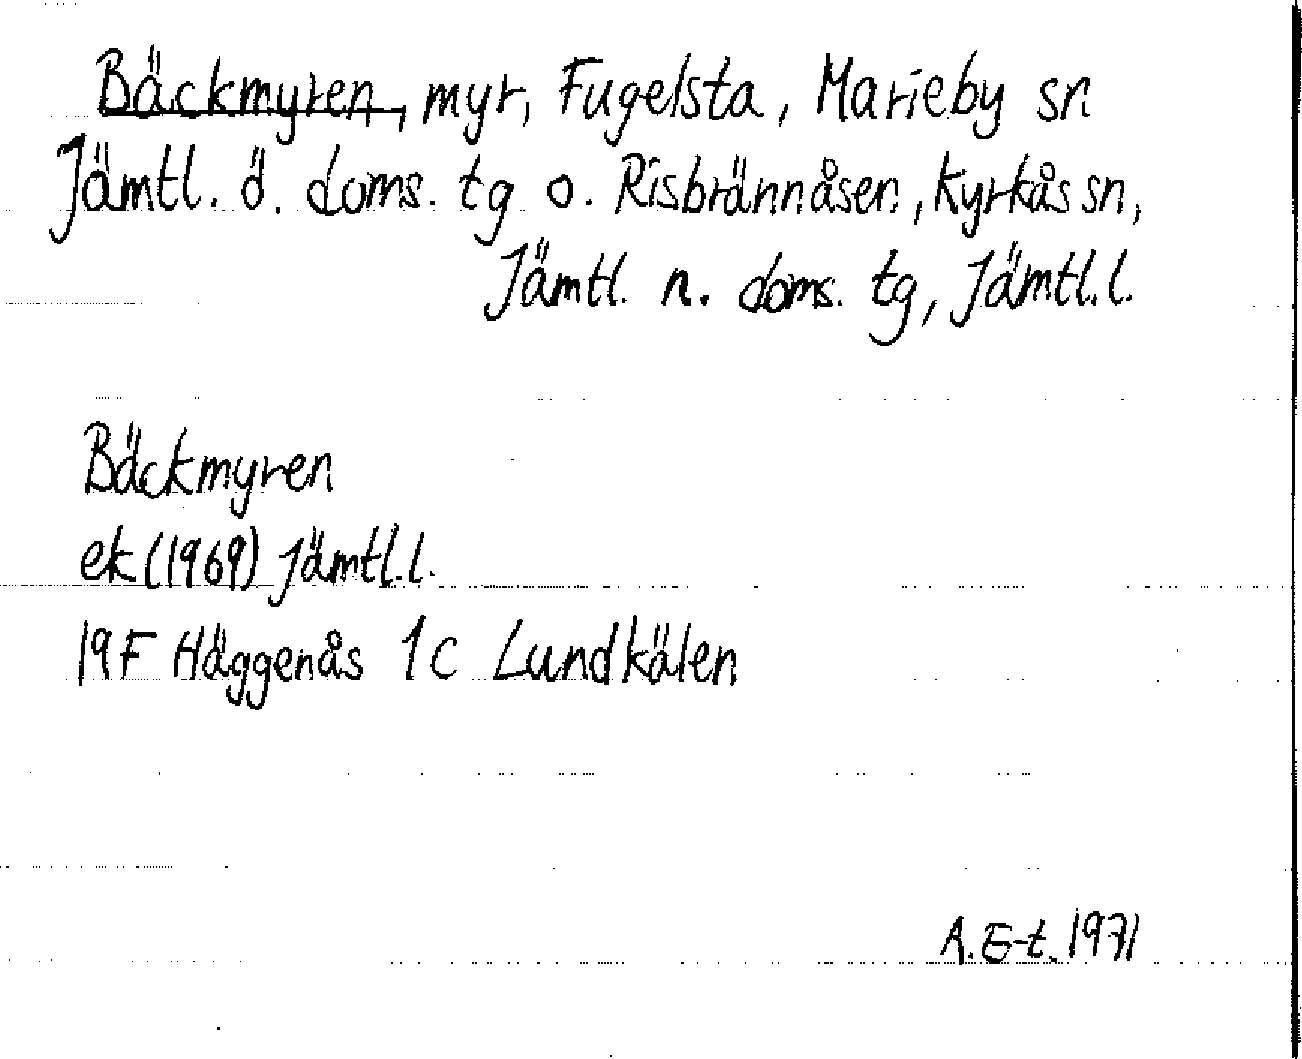 Bäckmyren, myr, Fugelsta, Marieby sn
Jämtl. ö. doms. tg o. Risbrännåsen, Kyrkås sn,
Jämtl. n. doms. tg, Jämtl.l.
Bäckmyren
ek (1969) Jämtl.l.
19F Häggenås 1c Lundkälen
A. E-t. 1971